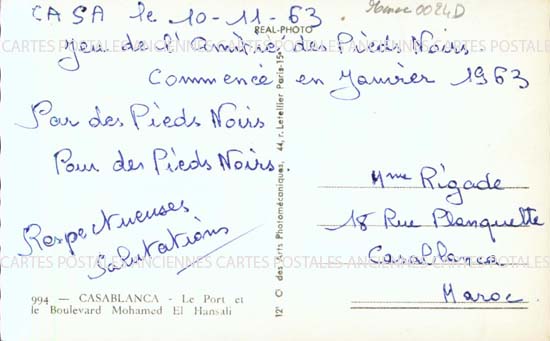 CASA le 10-11-63
Maroc 0024D
REAL-PHOTO
Jeu de l'Amitié des Pieds Noirs
CARTES POSTALES ANCIENNES CARTES POSTALES ANCIENNES CARTES POSTALES
Commencé en Janvier 1963
Par des Pieds Noirs
Pour des Pieds Noirs.
Respectueuses
Salutations
Mme Rigade
18 Rue Planquette
Casablanca
Maroc
CARTES POSTALES ANCIENNES CARTES POSTALES ANCIENNES CARTES POSTALES
994 — CASABLANCA - Le Port et
le Boulevard Mohamed El Hansali
des Arts Photomécaniques, 44, r. Letellier Paris-15e